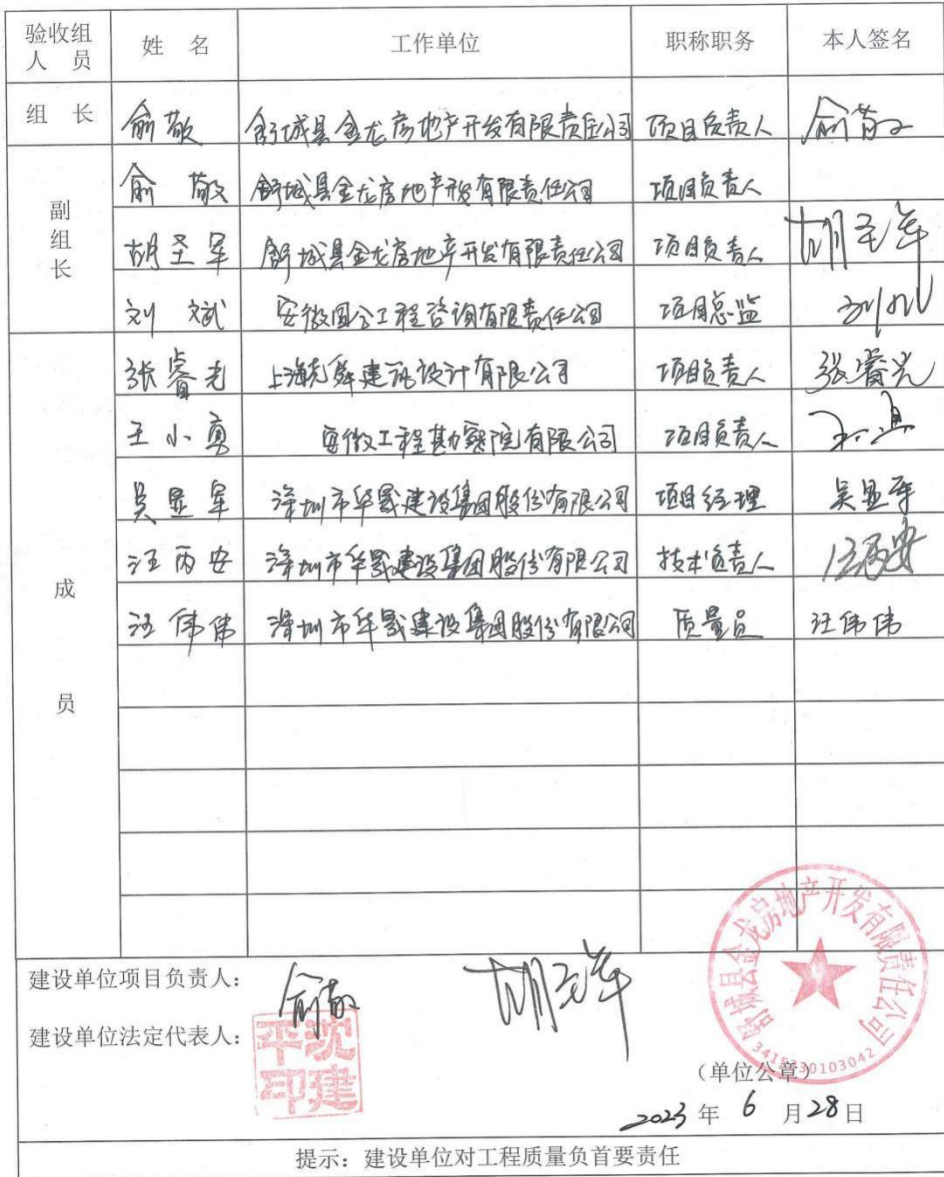 验收组人员 姓 名 工作单位 职称职务 本人签名
组 长 俞敬 舒城县金龙房地产开发有限责任公司 项目负责人 俞敬
副组长 俞 敬 舒城县金龙房地产开发有限责任公司 项目负责人
胡圣军 舒城县金龙房地产开发有限责任公司 项目负责人 胡圣军
刘 斌 安徽国合工程咨询有限责任公司 项目总监 刘斌
成员 张睿光 上海尧舜建筑设计有限公司 项目负责人 张睿光
王小勇 安徽工程勘察院有限公司 项目负责人
吴显军 深圳市华晟建设集团股份有限公司 项目经理 吴显军
汪丙安 深圳市华晟建设集团股份有限公司 技术负责人 汪丙安
汪伟伟 深圳市华晟建设集团股份有限公司 质量员 汪伟伟
建设单位项目负责人: 俞敬 胡圣军
建设单位法定代表人:
沈建平印
舒城县金龙房地产开发有限责任公司
3415230103042
(单位公章)
2023 年 6 月 28 日
提示:建设单位对工程质量负首要责任